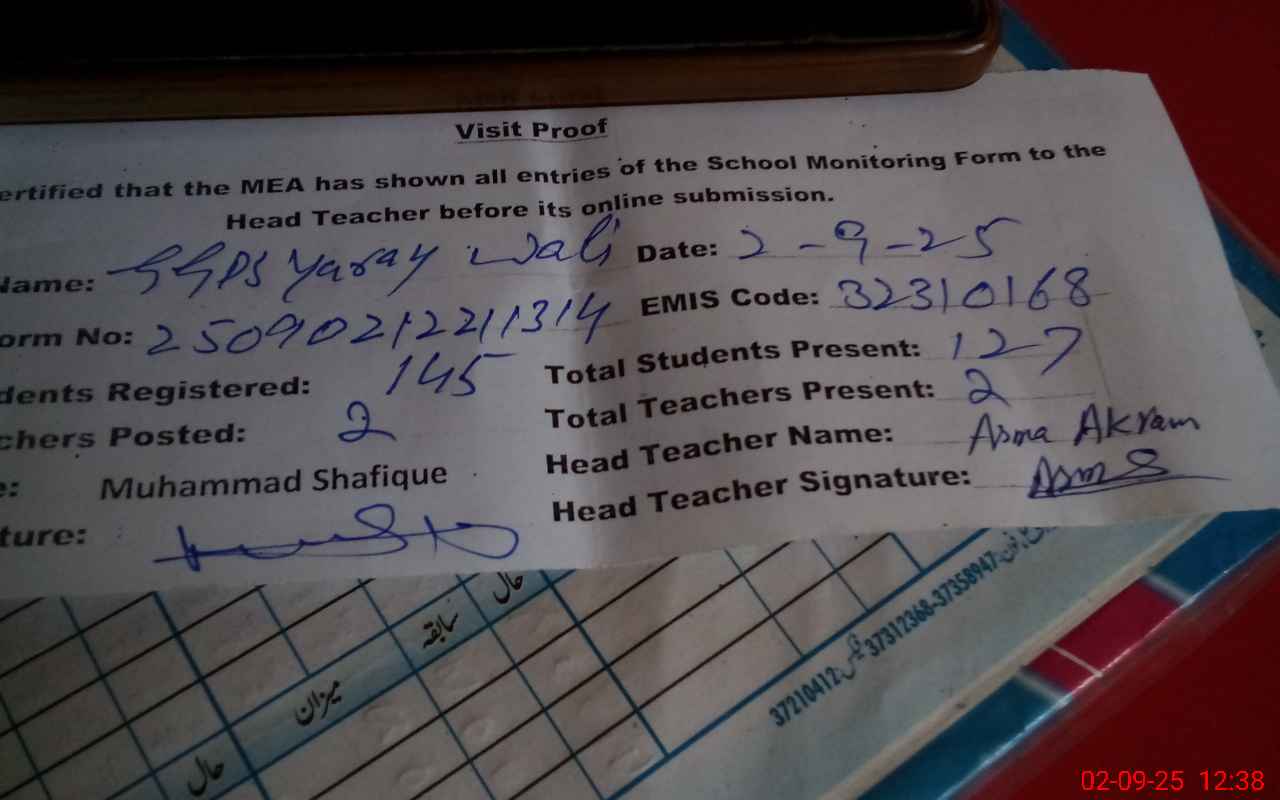 Visit Proof
ertified that the MEA has shown all entries of the School Monitoring Form to the
Head Teacher before its online submission.
Name: GGPS Yaray Wali Date: 2-9-25
orm No: 250902122211314 EMIS Code: 32310168
dents Registered: 145 Total Students Present: 127
chers Posted: 2 Total Teachers Present: 2
e: Muhammad Shafique Head Teacher Name: Asma Akram
ture: Head Teacher Signature:
حال
سابقہ
میزان
حال
37210412: فیکس 37312368-37358947: فون
02-09-25 12:38